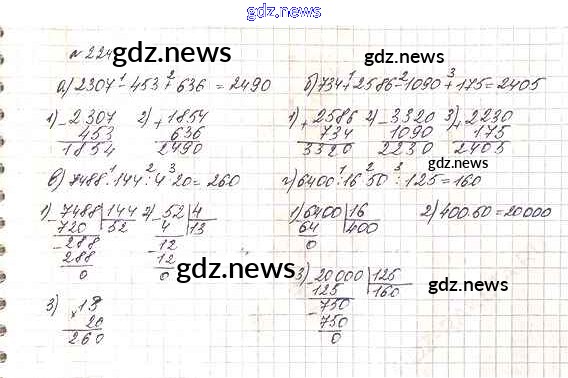 gdz.news
№ 224
gdz.news
gdz.news
а) 2307 - 453 + 636 = 2490
1 2
б) 734 + 2586 - 1090 + 175 = 2405
1 2 3
1) - 2307
453
1854
2) + 1854
636
2490
1) + 2586
734
3320
2) - 3320
1090
2230
3) + 2230
175
2405
gdz.news
в) 7488 : 144 : 4 · 20 = 260
1 2 3
г) 6400 : 16 · 50 : 125 = 160
1 2 3
1) - 7488 | 144
720 | 52
- 288
288
0
2) - 52 | 4
4 | 13
- 12
12
0
1) 6400 | 16
64 | 400
0
2) 400 · 50 = 20000
gdz.news
3) - 20000 | 125
125 | 160
- 750
750
0
gdz.news
3) × 13
20
260
gdz.news